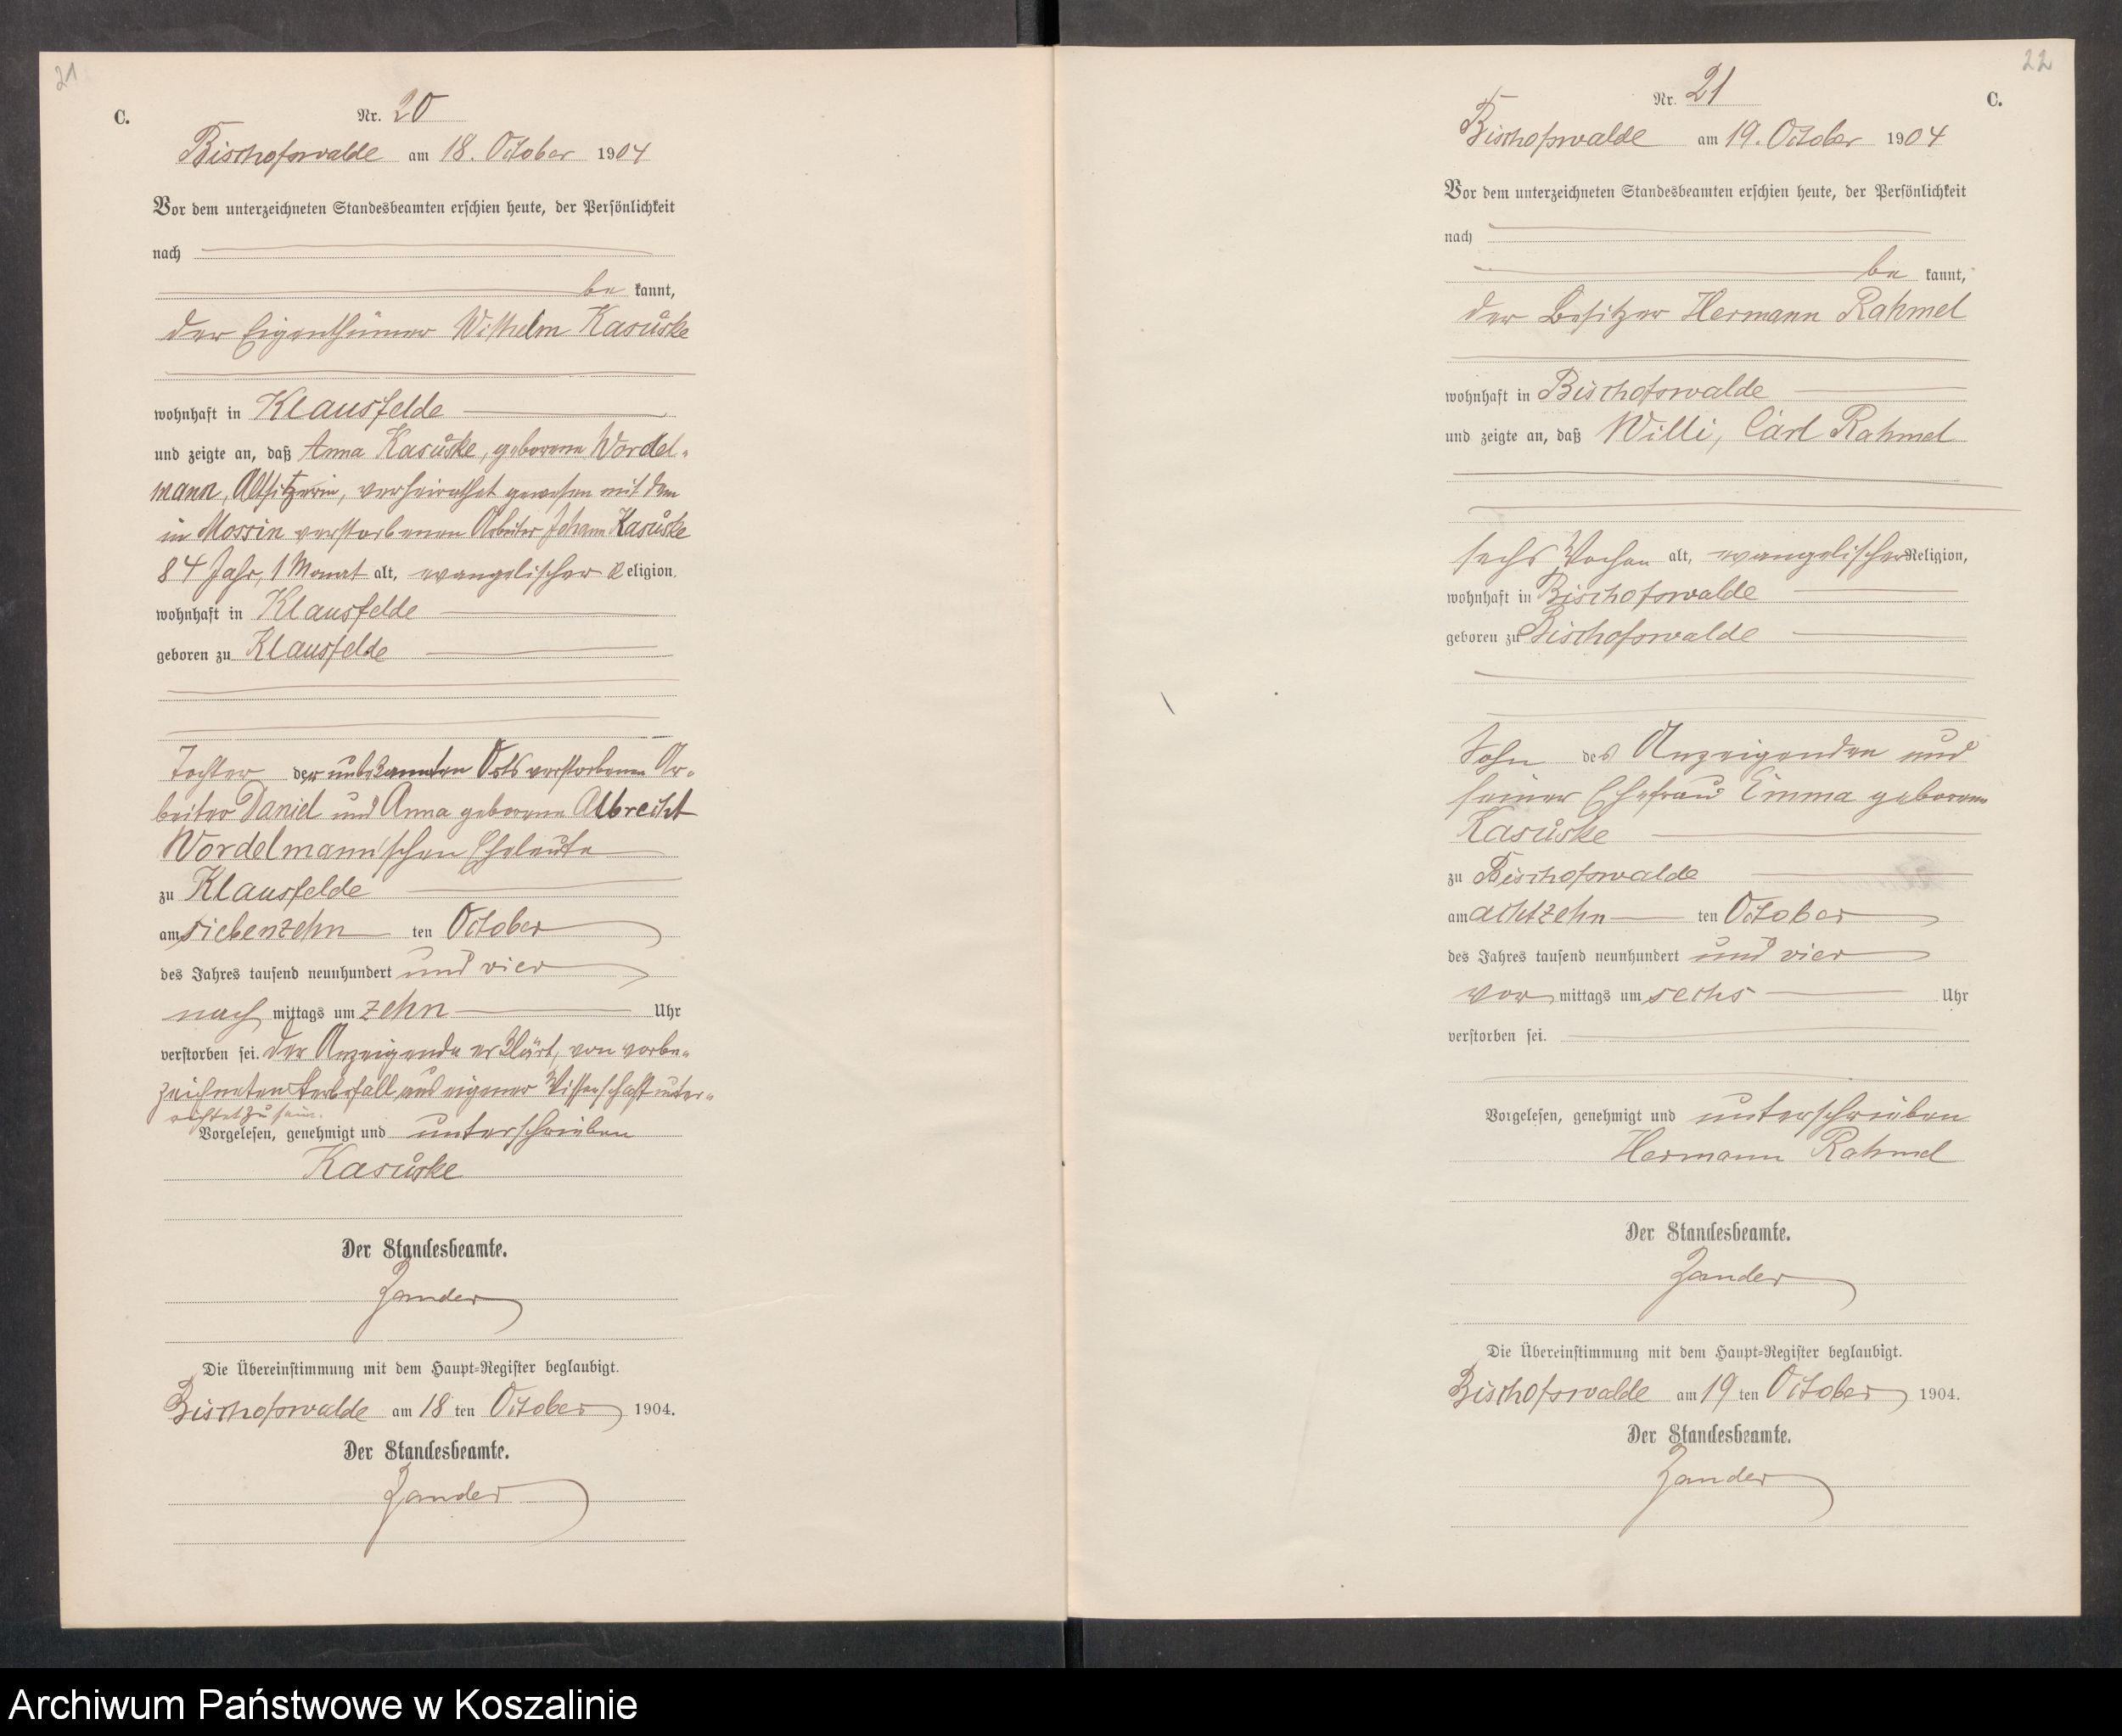 21
C.
Nr. 20
Bischofswalde am 18. October 1904
Vor dem unterzeichneten Standesbeamten erschien heute, der Persönlichkeit
nach
be kannt,
der Eigenthümer Wilhelm Kasüske
wohnhaft in Klausfelde
und zeigte an, daß Anna Kasüske, geborene Wordel-
mann, Altsitzerin, verheirathet gewesen mit dem
in Mossin verstorbenen Arbeiter Johann Kasüske
84 Jahr, 1 Monat alt, evangelischer Religion,
wohnhaft in Klausfelde
geboren zu Klausfelde
Tochter der unbekannten Orts verstorbenen Ar-
beiter Daniel und Anna geborene Albrecht
Wordelmann'schen Eheleute
zu Klausfelde
am siebenzehn ten October
des Jahres tausend neunhundert und vier
nach mittags um zehn Uhr
verstorben sei. Der Anzeigende erklärt, von vorbe-
zeichneten Sterbefall aus eigener Wissenschaft unter-
richtet zu sein.
Vorgelesen, genehmigt und unterschrieben
Kasüske
Der Standesbeamte.
Zander
Die Übereinstimmung mit dem Haupt-Register beglaubigt.
Bischofswalde am 18 ten October 1904.
Der Standesbeamte.
Zander
22
Nr. 21
C.
Bischofswalde am 19. October 1904
Vor dem unterzeichneten Standesbeamten erschien heute, der Persönlichkeit
nach
be kannt,
der Besitzer Hermann Rahmel
wohnhaft in Bischofswalde
und zeigte an, daß Willi, Carl Rahmel
sechs Wochen alt, evangelischer Religion,
wohnhaft in Bischofswalde
geboren zu Bischofswalde
Sohn des Anzeigenden und
seiner Ehefrau Emma geborene
Kasüske
zu Bischofswalde
am achtzehn ten October
des Jahres tausend neunhundert und vier
vor mittags um sechs Uhr
verstorben sei.
Vorgelesen, genehmigt und unterschrieben
Hermann Rahmel
Der Standesbeamte.
Zander
Die Übereinstimmung mit dem Haupt-Register beglaubigt.
Bischofswalde am 19 ten October 1904.
Der Standesbeamte.
Zander
Archiwum Państwowe w Koszalinie